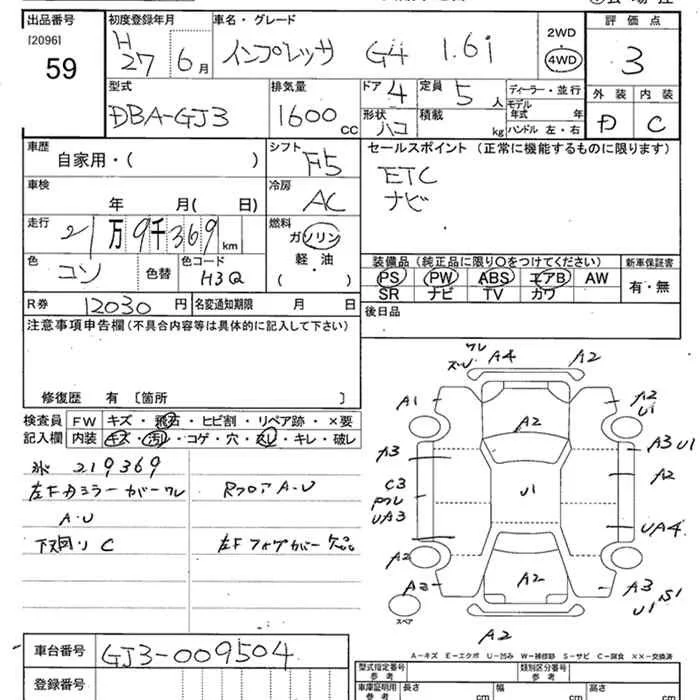 出品番号 初度登録年月 車名・グレード 評価点
[2096] H
59 27 6月 インプレッサ G4 1.6i 2WD 4WD 3
型式 排気量 ドア 4 定員 5人 ディーラー・並行 外装 内装
DBA-GJ3 1600cc 形状 ハコ 積載 kg モデル年式 年 D C
ハンドル 左・右
車歴 シフト F5 セールスポイント (正常に機能するものに限ります)
自家用・( ) ETC
車検 冷房 ナビ
年 月( 日) AC
走行 燃料
21万9千369km ガソリン
軽・油
( )
色 コン 色替 色コード H3Q
装備品 (純正品に限り○をつけてください) 新車保証書
PS PW ABS エアB AW 有・無
SR ナビ TV カワ
R券 12030円 名変通知期限 月 日 後日品
注意事項申告欄 (不具合内容等は具体的に記入して下さい)
修復歴 有 〔箇所 〕
検査員 FW キズ・飛石・ヒビ割・リペア跡・×要
記入欄 内装 キズ・汚レ・コゲ・穴・スレ・キレ・破レ
219369
左Fドミラーカバーワレ RフロアA・U
A・U
下廻リ C 左Fフォグカバー欠品
ワレ
ズレ A4 A2
A1 A2 A2
U1
A3 A3 U1
C3 U1 A2
ワレ
UA3 UA4
A2
A2 A2 A3
U1 S1
スペア
A2
A-キズ E-エクボ U-凹み W-補修跡 S-サビ C-腐食 ××-交換済
車台番号 GJ3-009504
登録番号
型式指定番号 参考 類別区分番号 参考
車庫証明用 参考 長さ cm 幅 cm 高さ cm